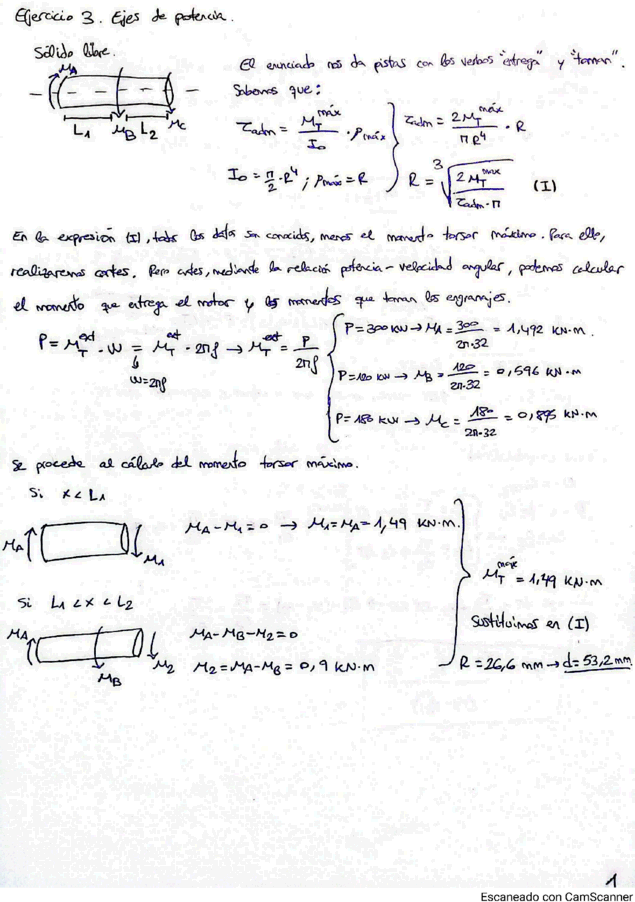 Ejercicio 3. Ejes de potencia.
Sólido libre.
El enunciado nos da pistas con los verbos "entrega" y "toman".
Sabemos que:
M_A
L1 M_B L2 M_C
τadm = M_T^máx / I_o · ρmáx
I_o = π/2 · R^4 ; ρmáx = R
τadm = 2M_T^máx / πR^4 · R
R = ∛(2M_T^max / τadm·π) (I)
En la expresión (I), todos los datos son conocidos, menos el momento torsor máximo. Para ello,
realizaremos cortes. Pero antes, mediante la relación potencia - velocidad angular, podemos calcular
el momento que entrega el motor y los momentos que toman los engranajes.
P = M_T^ext · ω = M_T^ext · 2πf → M_T^ext = P / 2πf
ω = 2πf
P = 300 KW → M_A = 300 / 2π·32 = 1,492 KN·m.
P = 120 KW → M_B = 120 / 2π·32 = 0,596 KN·m
P = 180 KW → M_C = 180 / 2π·32 = 0,895 KN·m
Se procede al cálculo del momento torsor máximo.
Si x < L1
M_A M_1
M_A - M_1 = 0 → M_1 = M_A = 1,49 KN·m.
Si L1 < x < L2
M_A M_B M_2
M_A - M_B - M_2 = 0
M_2 = M_A - M_B = 0,9 KN·m
M_T^max = 1,49 KN·m
Sustituimos en (I)
R = 26,6 mm → d = 53,2 mm
1
Escaneado con CamScanner